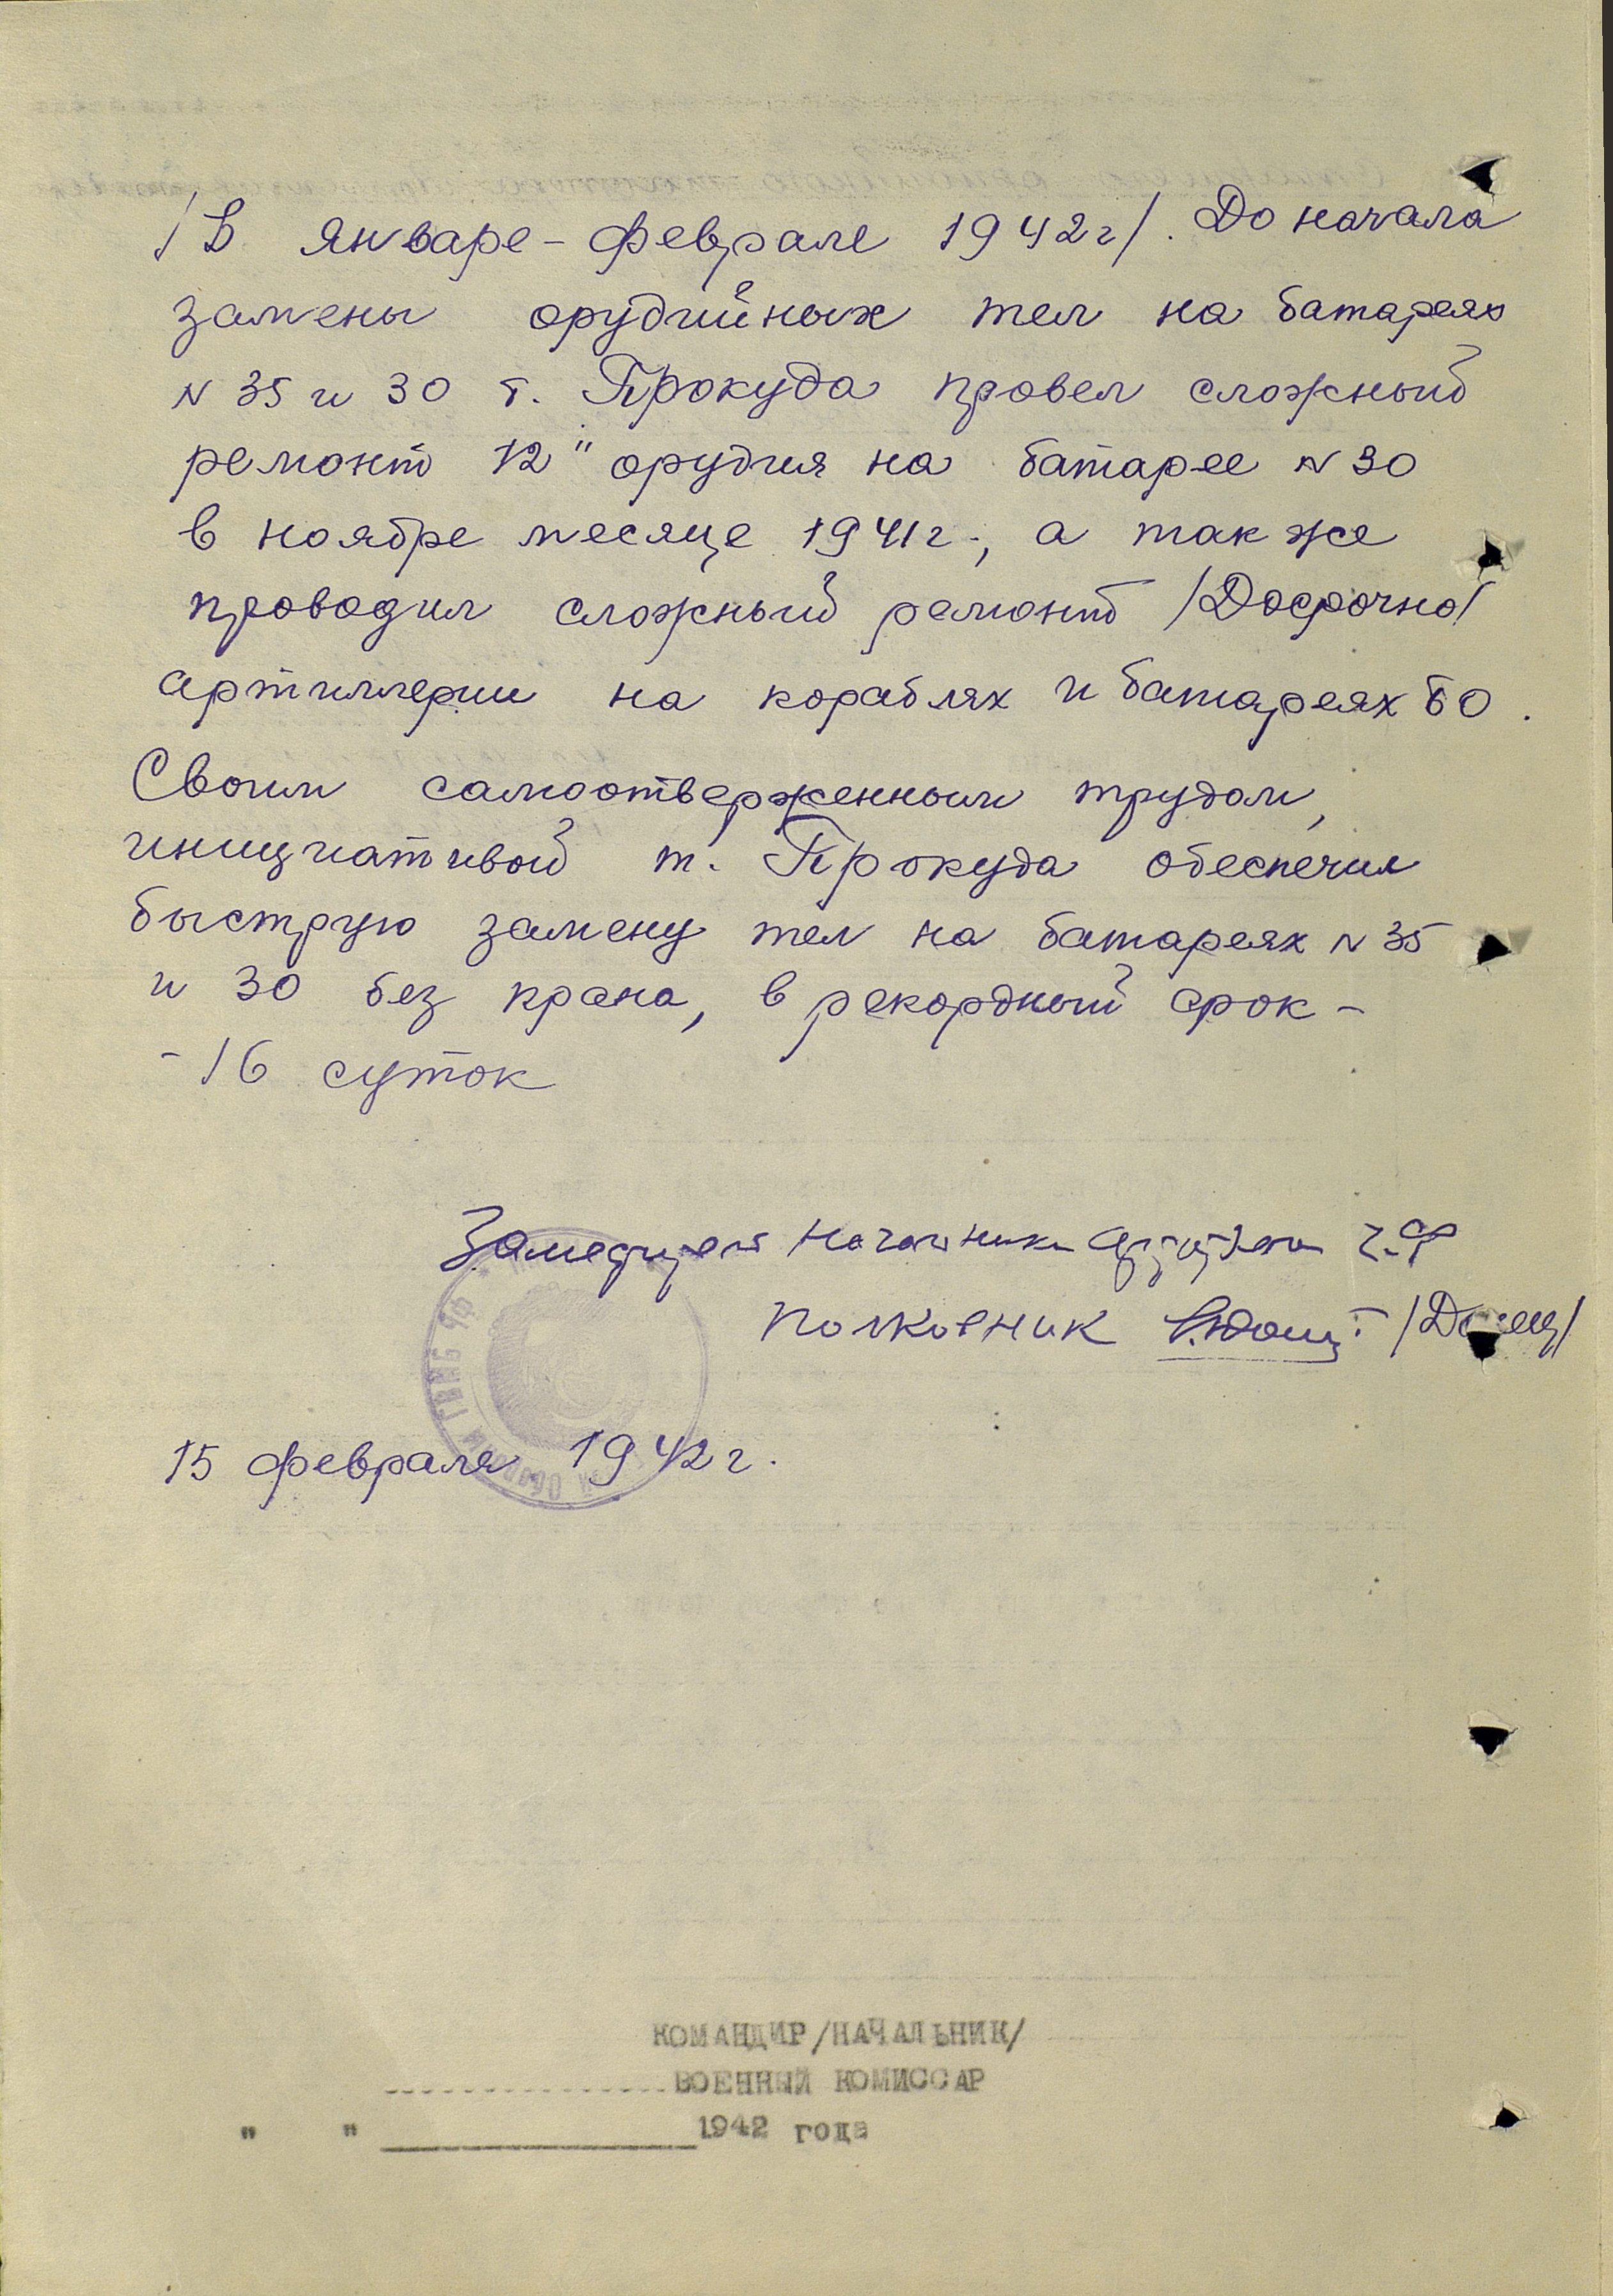 /В январе - феврале 1942г/. До начала
замены орудийных тел на батареях
N 35 и 30 т. Прокуда провел сложный
ремонт 12" орудия на батарее N 30
в ноябре месяце 1941г., а так же
проводил сложный ремонт /Досрочно/
артиллерии на кораблях и батареях БО.
Своим самоотверженным трудом,
инициативой т. Прокуда обеспечил
быструю замену тел на батареях N 35
и 30 без крана, в рекордный срок -
- 16 суток
Начальника ЧФ
Полковник
15 февраля 1942г.
КОМАНДИР/НАЧАЛЬНИК/
ВОЕННЫЙ КОМИССАР
" " 1942 года